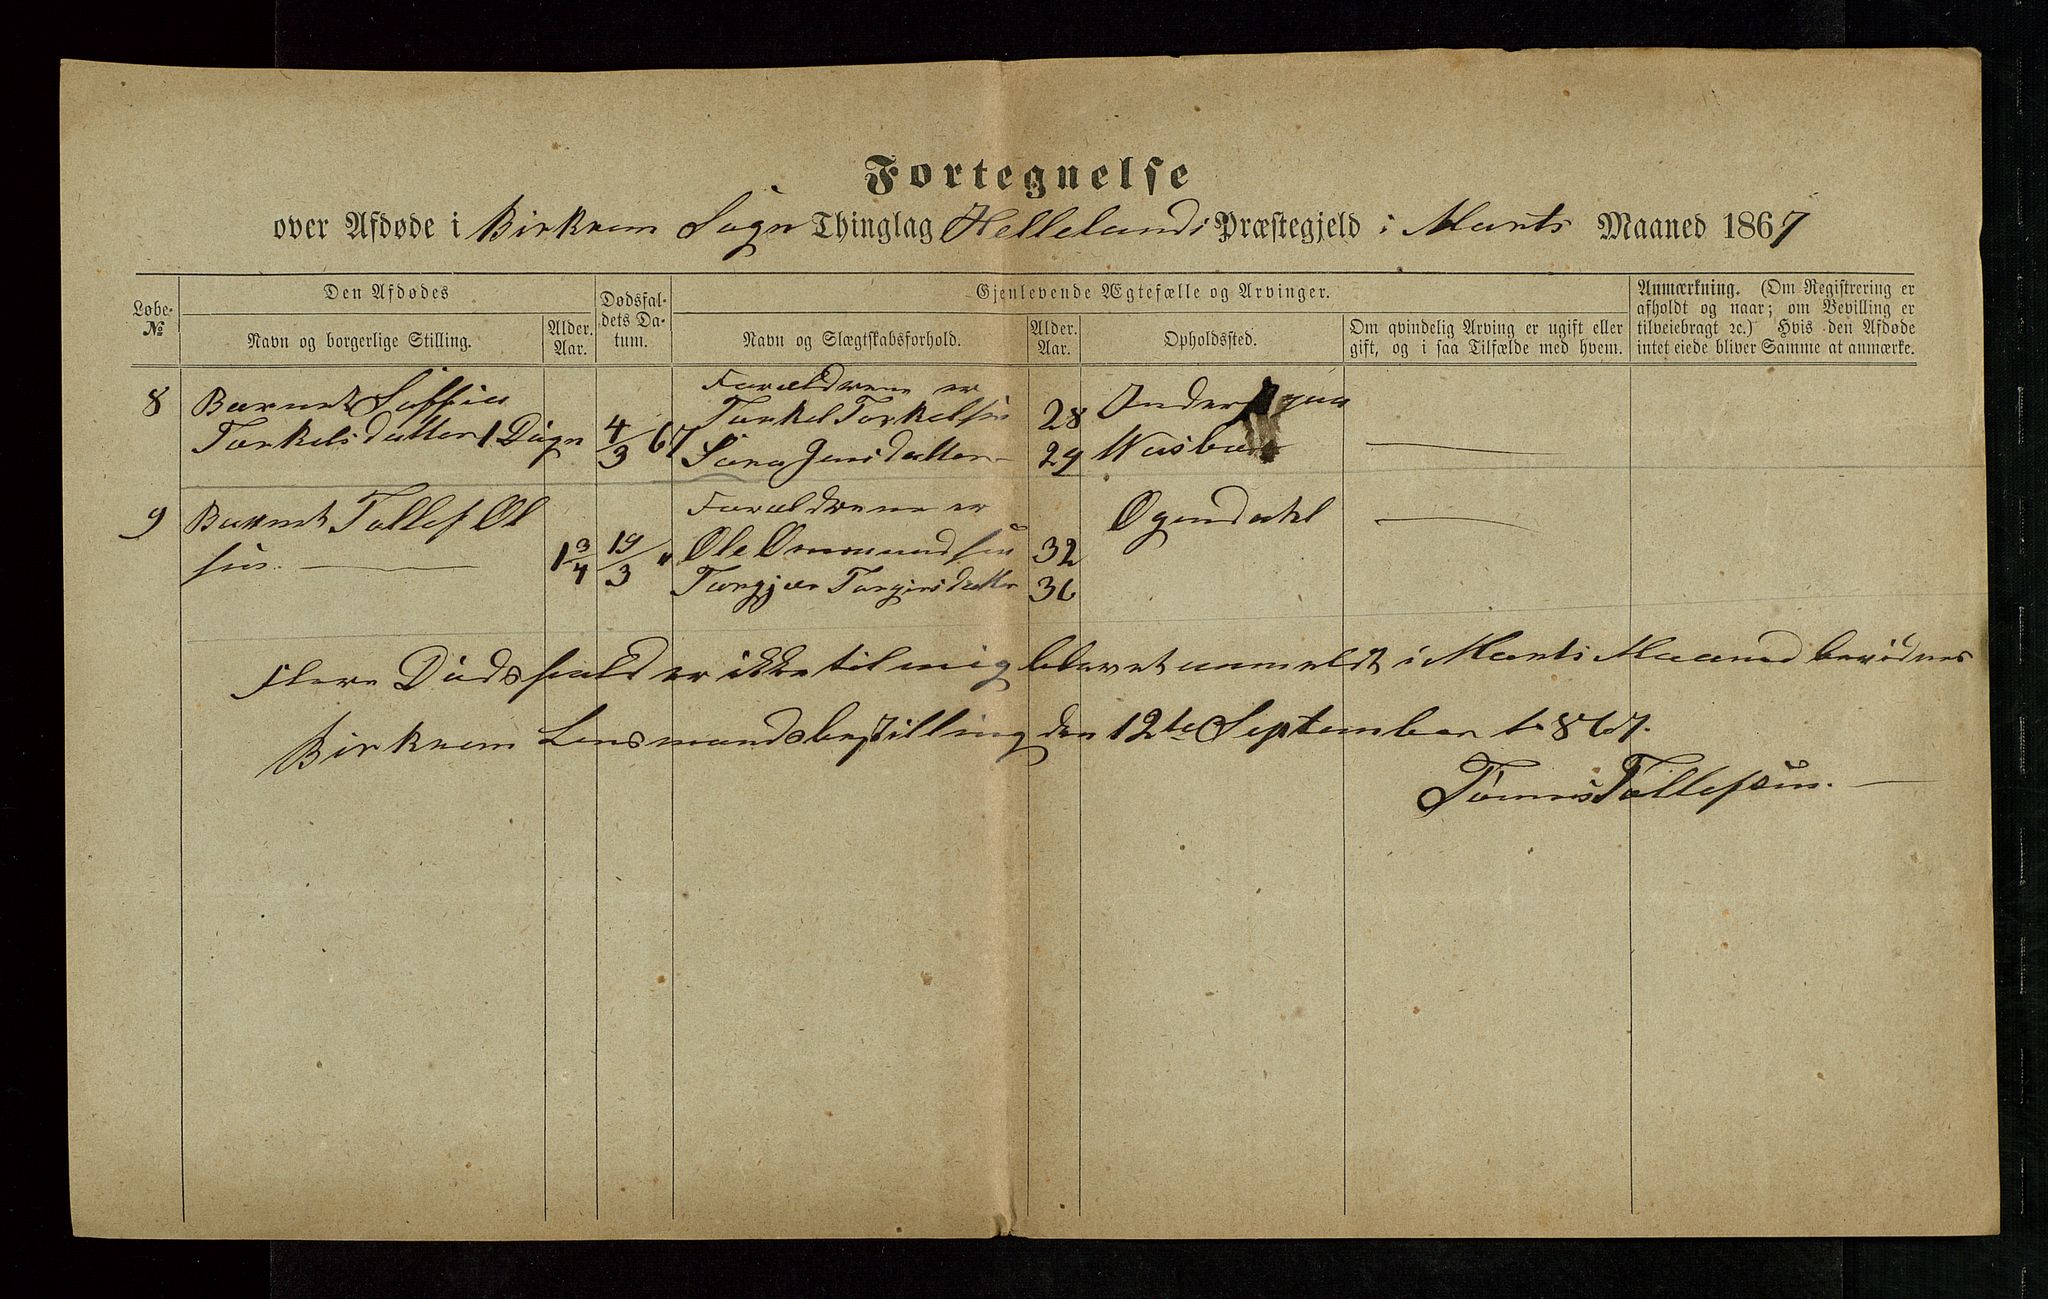 Fortegnelse
over Afdøde i Birkrem Sogn Thinglag Hellelands Præstegjeld i Marts Maaned 1867
Løbe-
No
Den Afdødes
Navn og borgerlige Stilling.
Alder.
Aar.
Dødsfal-
dets Da-
tum.
Gjenlevende Ægtefælle og Arvinger.
Navn og Slægtskabsforhold.
Alder.
Aar.
Opholdssted.
Om qvindelig Arving er ugift eller
gift, og i saa Tilfælde med hvem.
Anmærkning. (Om Registrering er
afholdt og naar; om Bevilling er
tilveiebragt 2c.) Hvis den Afdøde
intet eiede bliver Samme at anmærke.
8 Barnet Soffia
Torkelsdatter 1 Døgn 4/3 67
Forældrene er
Torkel Torkelsen 28
Sara Jensdatter 29
9 Barnet Tollef Ol
sen. 1 3/4 19/3 "
Forældrene er
Ole Ommundsen 32
Torgjer Torgersdatter 36
Øgendahl
Flere Dødsfald er ikke til mig blevet anmeldt i Marts Maaned bevidnes
Birkrem Lensmandsbestilling den 12te September 1867.
Tønnes Tollefsen.